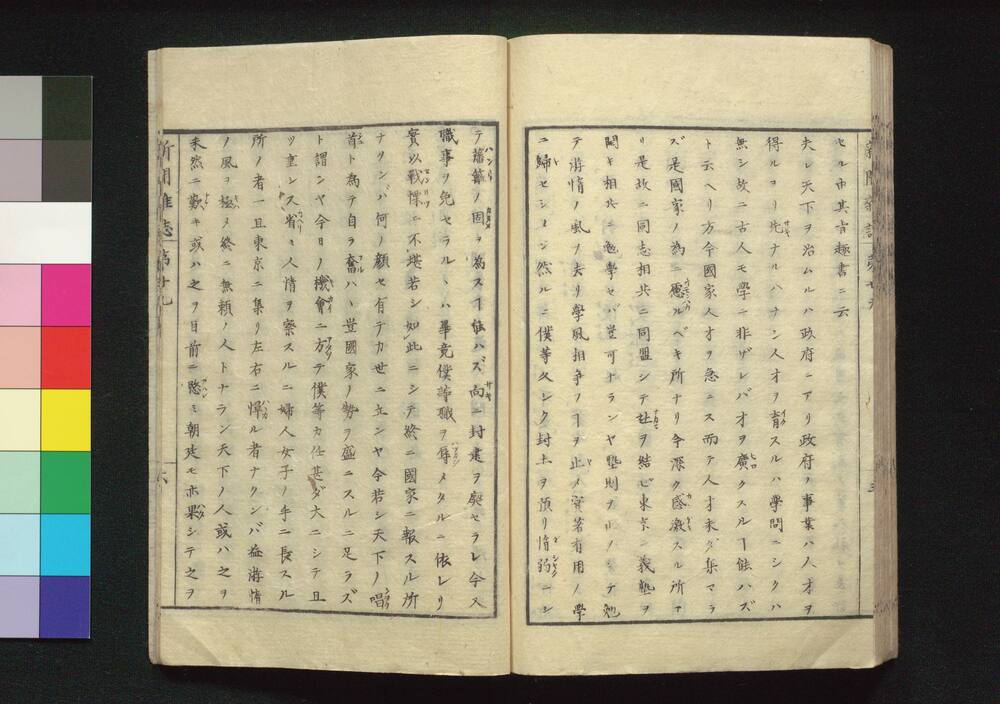 セル由其旨趣書ニ云
夫レ天下ヲ治ムルハ政府ニアリ政府ノ事業ハ人才ヲ
得ルヨリ先ナルハナシ人才ヲ育スルハ学問ニシクハ
無シ故ニ古人モ學ニ非ザレバオヲ廣クスルヿ能ハズ
ト云ヘリ方今國家人才ヲ急ニス而テ人才未ダ集マラ
ズ是國家ノ為ニ慮ルベキ所ナリ今深ク感激スル所ア
リ是故ニ同志相共ニ同盟シテ社ヲ結ビ東京ニ義塾ヲ
開キ相共ニ勉學セバ豈可ナランヤ塾則ヲ正ノシテ勉
テ游惰ノ風ヲ去リ學風相争フヿヲ止メ實著有用ノ學
ニ歸セシメン然ルニ僕等久シク封土ヲ預リ惰弱ニシ
テ藩籬ノ固ヲ為スヿ能ハズ向ニ封建ヲ廃セラレ今又
職事ヲ免セラルヽハ畢竟僕等職ヲ辱メタルニ依レリ
實以戦慄ニ不堪若シ如此ニシテ終ニ國家ニ報スル所
ナクンバ何ノ顔セ有テカ世ニ立ンヤ今若シ天下ノ唱
首ト為テ自ラ奮ハヽ豈國家ノ勢ヲ盛ニスルニ足ラズ
ト謂ンヤ今日ノ機會ニ方テ僕等カ任甚ダ大ニシテ且
ツ重シス省ミ人情ヲ察スルニ婦人女子ノ手ニ長スル
所ノ者一旦東京ニ集リ左右ニ憚ル者ナクンバ益游惰
ノ風ヲ極メ終ニ無頼ノ人トナラン天下ノ人或ハ之ヲ
未然ニ歎キ或ハ之ヲ目前ニ愍ミ朝廷モ亦果シテ之ヲ
新聞雑誌 第廿九
六